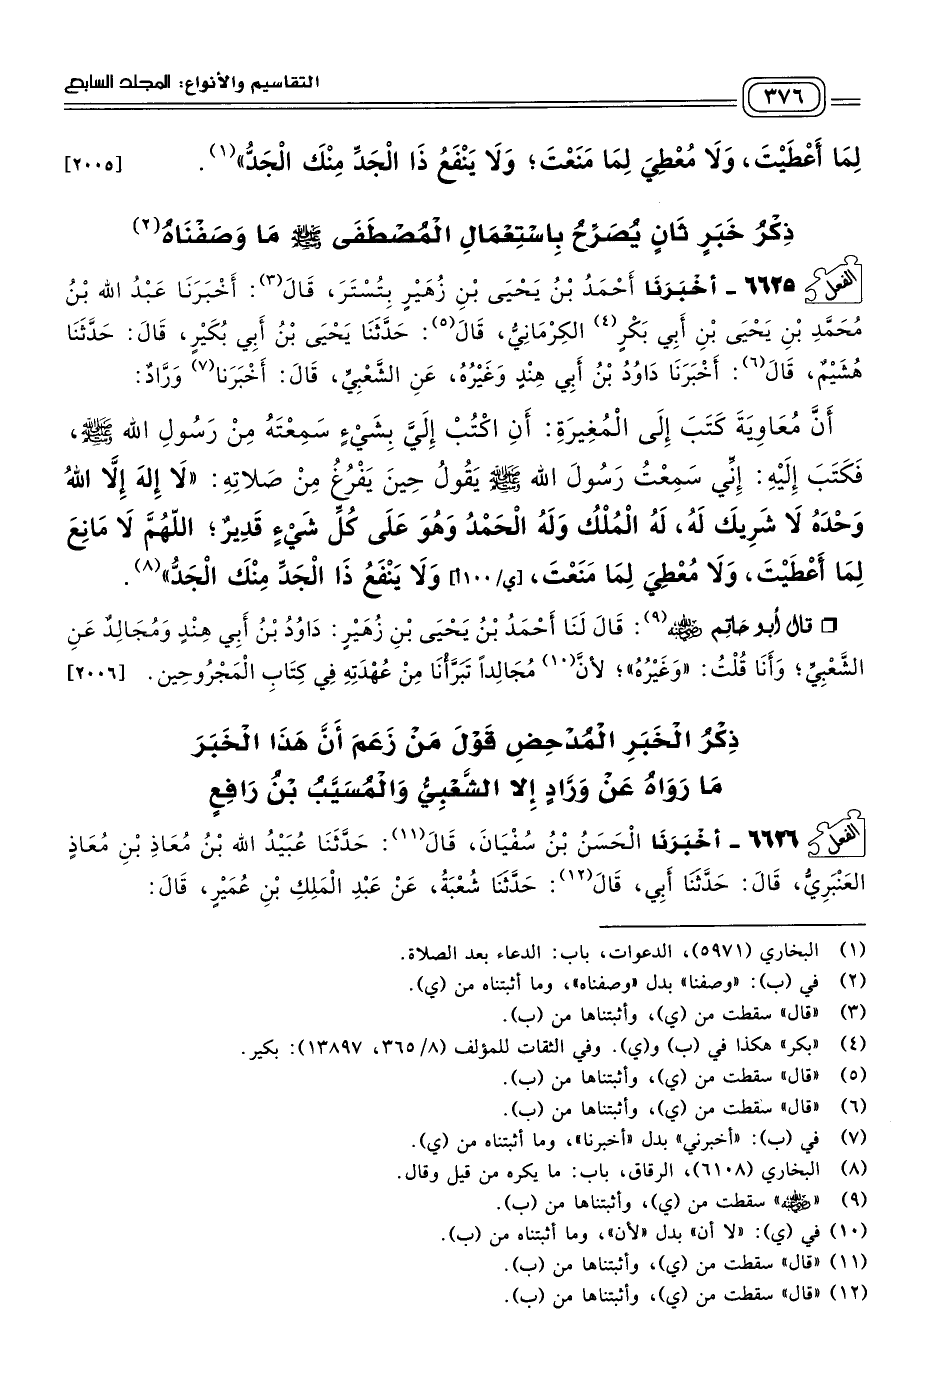 ٣٧٦ التقاسيم والأنواع: المجلد السابع
لِمَا أَعْطَيْتَ، وَلَا مُعْطِيَ لِمَا مَنَعْتَ؛ وَلَا يَنْفَعُ ذَا الْجَدِّ مِنْكَ الْجَدُّ»(١). [٢٠٠٥]
ذِكْرُ خَبَرٍ ثَانٍ يُصَرِّحُ بِاسْتِعْمَالِ الْمُصْطَفَى ﷺ مَا وَصَفْنَاهُ(٢)
الفعل ٦٦٢٥ ـ أخْبَرَنَا أَحْمَدُ بْنُ يَحْيَى بْنِ زُهَيْرٍ بِتُسْتَرَ، قَالَ(٣): أَخْبَرَنَا عَبْدُ الله بْنُ
مُحَمَّدِ بْنِ يَحْيَى بْنِ أَبِي بَكْرٍ(٤) الكِرْمَانِيُّ، قَالَ(٥): حَدَّثَنَا يَحْيَى بْنُ أَبِي بُكَيْرٍ، قَالَ: حَدَّثَنَا
هُشَيْمٌ، قَالَ(٦): أَخْبَرَنَا دَاوُدُ بْنُ أَبِي هِنْدٍ وَغَيْرُهُ، عَنِ الشَّعْبِيِّ، قَالَ: أَخْبَرَنا(٧) وَرَّادٌ:
أَنَّ مُعَاوِيَةَ كَتَبَ إِلَى الْمُغِيرَةِ: أَنِ اكْتُبْ إِلَيَّ بِشَيْءٍ سَمِعْتَهُ مِنْ رَسُولِ الله ﷺ،
فَكَتَبَ إِلَيْهِ: إِنِّي سَمِعْتُ رَسُولَ الله ﷺ يَقُولُ حِينَ يَفْرُغُ مِنْ صَلَاتِهِ: «لَا إِلهَ إِلَّا اللهُ
وَحْدَهُ لَا شَرِيكَ لَهُ، لَهُ الْمُلْكُ وَلَهُ الْحَمْدُ وَهُوَ عَلَى كُلِّ شَيْءٍ قَدِيرٌ؛ اللّهُمَّ لَا مَانِعَ
لِمَا أَعْطَيْتَ، وَلَا مُعْطِيَ لِمَا مَنَعْتَ، [ي/١٠٠أ] وَلَا يَنْفَعُ ذَا الْجَدِّ مِنْكَ الْجَدُّ»(٨).
❑ قال أبو حاتم ﵁(٩): قَالَ لَنَا أَحْمَدُ بْنُ يَحْيَى بْنِ زُهَيْرٍ: دَاوُدُ بْنُ أَبِي هِنْدٍ وَمُجَالِدٌ عَنِ
الشَّعْبِيِّ؛ وَأَنَا قُلْتُ: «وَغَيْرُهُ»؛ لأنَّ(١٠) مُجَالِداً تَبَرَّأْنَا مِنْ عُهْدَتِهِ فِي كِتَابِ الْمَجْرُوحِين. [٢٠٠٦]
ذِكْرُ الْخَبَرِ الْمُدْحِضِ قَوْلَ مَنْ زَعَمَ أَنَّ هَذَا الْخَبَرَ
مَا رَوَاهُ عَنْ وَرَّادٍ إلا الشَّعْبِيُّ وَالْمُسَيَّبُ بْنُ رَافِعٍ
الفعل ٦٦٢٦ ـ أخْبَرَنَا الْحَسَنُ بْنُ سُفْيَانَ، قَالَ(١١): حَدَّثَنَا عُبَيْدُ الله بْنُ مُعَاذِ بْنِ مُعَاذٍ
العَنْبَرِيُّ، قَالَ: حَدَّثَنَا أَبِي، قَالَ(١٢): حَدَّثَنَا شُعْبَةُ، عَنْ عَبْدِ الْمَلِكِ بْنِ عُمَيْرٍ، قَالَ:
(١) البخاري (٥٩٧١)، الدعوات، باب: الدعاء بعد الصلاة.
(٢) في (ب): «وصفنا» بدل «وصفناه»، وما أثبتناه من (ي).
(٣) «قال» سقطت من (ي)، وأثبتناها من (ب).
(٤) «بكر» هكذا في (ب) و(ي). وفي الثقات للمؤلف (٨/ ٣٦٥، ١٣٨٩٧): بكير.
(٥) «قال» سقطت من (ي)، وأثبتناها من (ب).
(٦) «قال» سقطت من (ي)، وأثبتناها من (ب).
(٧) في (ب): «أخبرني» بدل «أخبرنا»، وما أثبتناه من (ي).
(٨) البخاري (٦١٠٨)، الرقاق، باب: ما يكره من قيل وقال.
(٩) «﵁» سقطت من (ي)، وأثبتناها من (ب).
(١٠) في (ي): «لا أن» بدل «لأن»، وما أثبتناه من (ب).
(١١) «قال» سقطت من (ي)، وأثبتناها من (ب).
(١٢) «قال» سقطت من (ي)، وأثبتناها من (ب).